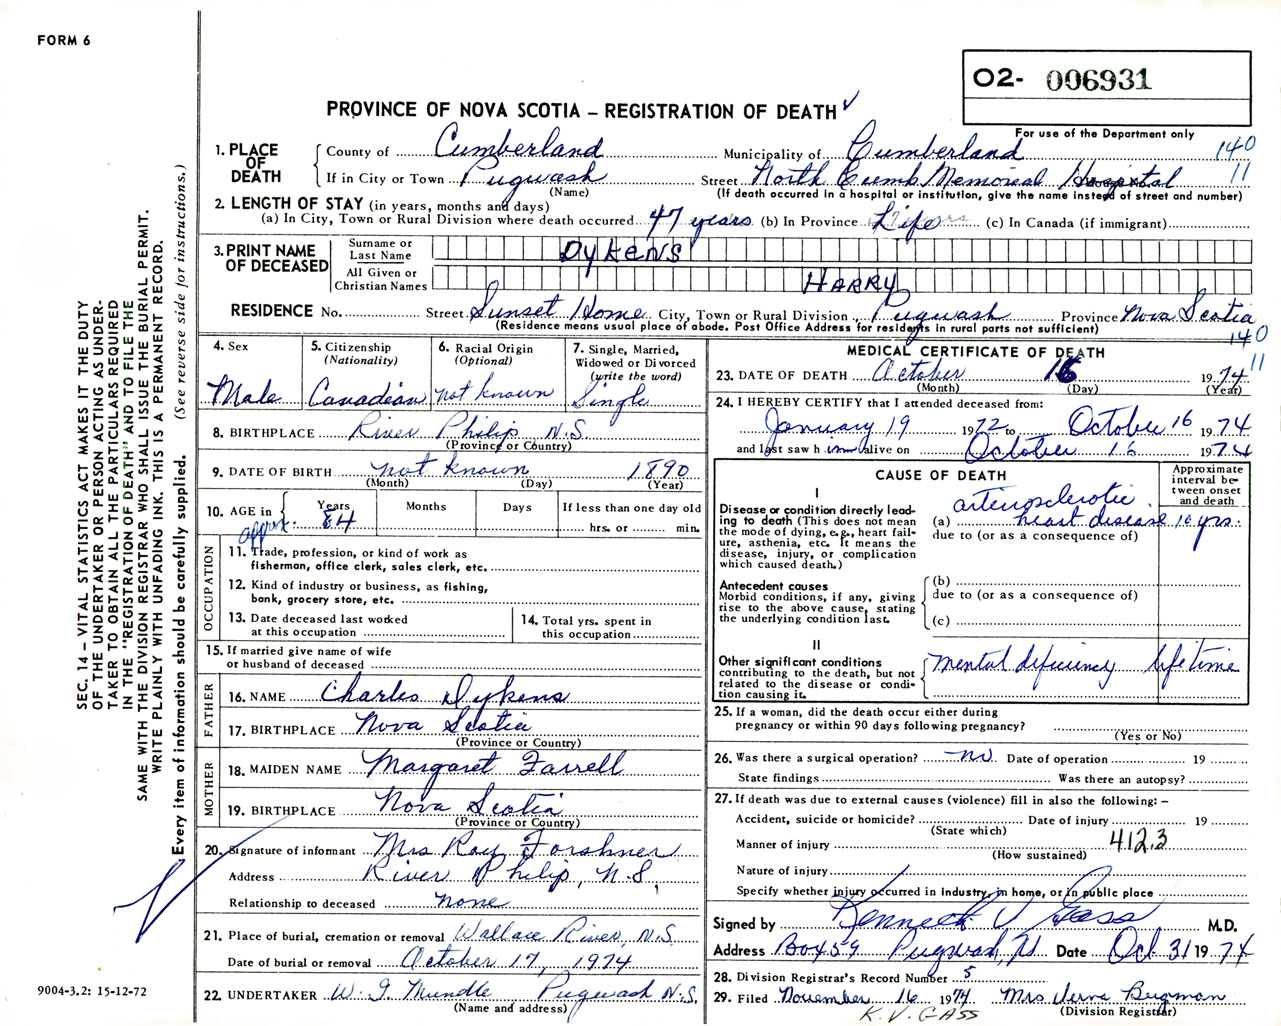 FORM 6
O2- 006931
PROVINCE OF NOVA SCOTIA – REGISTRATION OF DEATH
For use of the Department only
1. PLACE OF DEATH
County of Cumberland Municipality of Cumberland 140
If in City or Town Pugwash Street North Cumb. Memorial Hospital 11
(Name) (If death occurred in a hospital or institution, give the name instead of street and number)
2. LENGTH OF STAY (in years, months and days)
(a) In City, Town or Rural Division where death occurred 47 years (b) In Province Life (c) In Canada (if immigrant)
3. PRINT NAME OF DECEASED
Surname or Last Name DYKENS
All Given or Christian Names HARRY
RESIDENCE No. Street Sunset Home City, Town or Rural Division Pugwash Province Nova Scotia
(Residence means usual place of abode. Post Office Address for residents in rural parts not sufficient)
140
11
4. Sex
Male
5. Citizenship
(Nationality)
Canadian
6. Racial Origin
(Optional)
not known
7. Single, Married, Widowed or Divorced
(write the word)
Single
8. BIRTHPLACE River Philip N.S.
(Province or Country)
9. DATE OF BIRTH not known 1890
(Month) (Day) (Year)
10. AGE in Years Months Days If less than one day old
approx. 84 hrs. or min.
OCCUPATION
11. Trade, profession, or kind of work as
fisherman, office clerk, sales clerk, etc.
12. Kind of industry or business, as fishing,
bank, grocery store, etc.
13. Date deceased last worked
at this occupation
14. Total yrs. spent in
this occupation
15. If married give name of wife
or husband of deceased
FATHER
16. NAME Charles Dykens
17. BIRTHPLACE Nova Scotia
(Province or Country)
MOTHER
18. MAIDEN NAME Margaret Farrell
19. BIRTHPLACE Nova Scotia
(Province or Country)
20. Signature of informant Mrs Ray Forshner
Address River Philip, N.S.
Relationship to deceased none
21. Place of burial, cremation or removal Wallace River, N.S.
Date of burial or removal October 17, 1974
22. UNDERTAKER W. J. Mundle Pugwash N.S.
(Name and address)
MEDICAL CERTIFICATE OF DEATH
23. DATE OF DEATH October 16 1974
(Month) (Day) (Year)
24. I HEREBY CERTIFY that I attended deceased from:
January 19 1972 to October 16 1974
and last saw him alive on October 16 1974
CAUSE OF DEATH
Approximate interval between onset and death
I
Disease or condition directly leading to death (This does not mean the mode of dying, e.g., heart failure, asthenia, etc. It means the disease, injury, or complication which caused death.)
(a) arteriosclerotic
heart disease 10 yrs.
due to (or as a consequence of)
Antecedent causes
Morbid conditions, if any, giving rise to the above cause, stating the underlying condition last.
(b)
due to (or as a consequence of)
(c)
II
Other significant conditions contributing to the death, but not related to the disease or condition causing it.
mental deficiency life time
25. If a woman, did the death occur either during
pregnancy or within 90 days following pregnancy?
(Yes or No)
26. Was there a surgical operation? no Date of operation 19
State findings Was there an autopsy?
27. If death was due to external causes (violence) fill in also the following: –
Accident, suicide or homicide? Date of injury 19
(State which)
Manner of injury 412.3
(How sustained)
Nature of injury
Specify whether injury occurred in industry, in home, or in public place
Signed by Kenneth V Gass M.D.
Address Box 59 Pugwash, NS Date Oct. 31 1974
28. Division Registrar's Record Number 5
29. Filed November 16 1974 Mrs Verna
(Division Registrar)
K. V. GASS
SEC. 14 – VITAL STATISTICS ACT MAKES IT THE DUTY
OF THE UNDERTAKER OR PERSON ACTING AS UNDER-
TAKER TO OBTAIN ALL THE PARTICULARS REQUIRED
IN THE "REGISTRATION OF DEATH" AND TO FILE THE
SAME WITH THE DIVISION REGISTRAR WHO SHALL ISSUE THE BURIAL PERMIT.
WRITE PLAINLY WITH UNFADING INK. THIS IS A PERMANENT RECORD.
Every item of information should be carefully supplied. (See reverse side for instructions.)
9004-3.2: 15-12-72